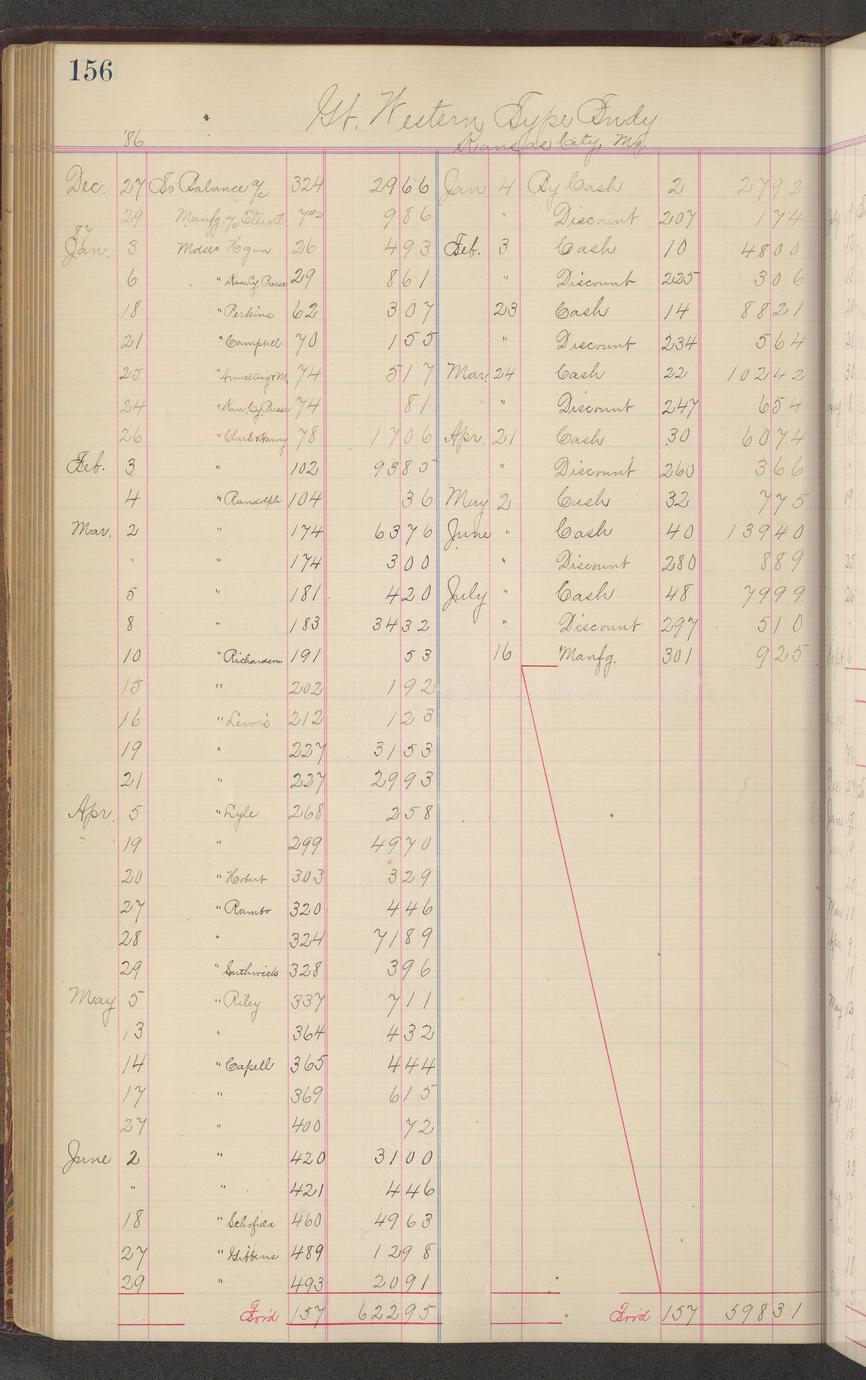 156
Gt. Western Type Fndy
Kansas City, Mo.
'86
Dec. 27 To Balance a/c 324 2966 Jan 4 By Cash 2 2792
29 Manfg. a/c Elliott 986 " Discount 207 174
87
Jan. 3 Mdse " Hogan 26 493 Feb. 3 Cash 10 4800
6 " Kan. Cy. Presse 29 861 " Discount 225 306
18 " Perkins 62 307 23 Cash 14 8821
21 " Campbell 70 155 " Discount 234 564
25 " Armstrong & M 74 517 Mar. 24 Cash 22 10242
24 " Kan. Cy. Presse 74 81 " Discount 247 654
26 " Clark & Harvey 78 1706 Apr. 21 Cash 30 6074
Feb. 3 " 102 9385 " Discount 260 366
4 " Randolph 104 36 May 2 Cash 32 775
Mar. 2 " 174 6376 June " Cash 40 13940
" " 174 300 " Discount 280 889
5 " 181 420 July " Cash 48 7999
8 " 183 3432 " Discount 297 510
10 " Richardson 191 53 16 Manfg. 301 925
15 " 202 192
16 " Lewis 212 123
19 " 227 3153
21 " 227 2993
Apr. 5 " Lyle 268 258
" 19 " 299 4970
20 " Hobert 303 329
27 " Rambo 320 446
28 " 324 7189
29 " Southwick 328 396
May 5 " Riley 337 711
13 " 364 432
14 " Capell 365 444
17 " 369 615
27 " 400 72
June 2 " 420 3100
" " 421 446
18 " Schofield 460 4963
27 " Gibbens 489 1298
29 " 493 2091
For'd 157 62295 For'd 157 59831